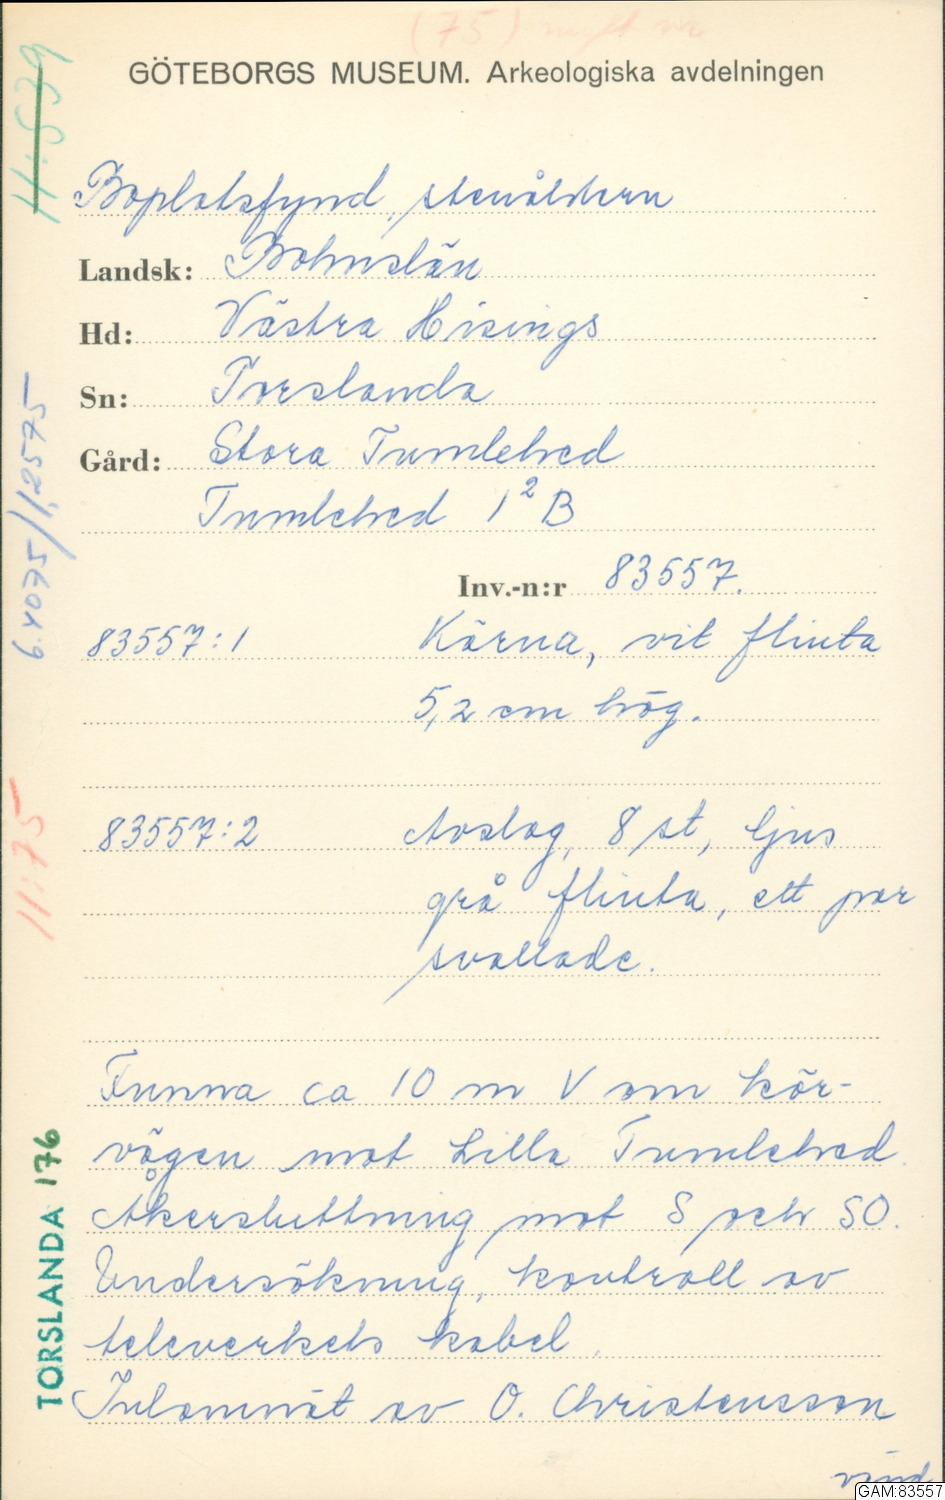 (75) nytt nr
GÖTEBORGS MUSEUM. Arkeologiska avdelningen
Boplatsfynd, stenåldern
Landsk: Bohuslän
Hd: Västra Hisings
Sn: Torslanda
Gård: Stora Tumlehed
Tumlehed 1² B
Inv.-n:r 83557.
83557:1 Kärna, vit flinta
5,2 cm hög.
83557:2 Avslag, 8 st, ljus
grå flinta, ett par
svallade.
Funna ca 10 m V om kör-
vägen mot Lilla Tumlehed.
Åkersluttning mot S och SO.
Undersökning, kontroll av
televerkets kabel.
Inlämnat av O. Christensson
vänd
11:539
6.4075/1,2575
11:75
TORSLANDA 176
GAM:83557